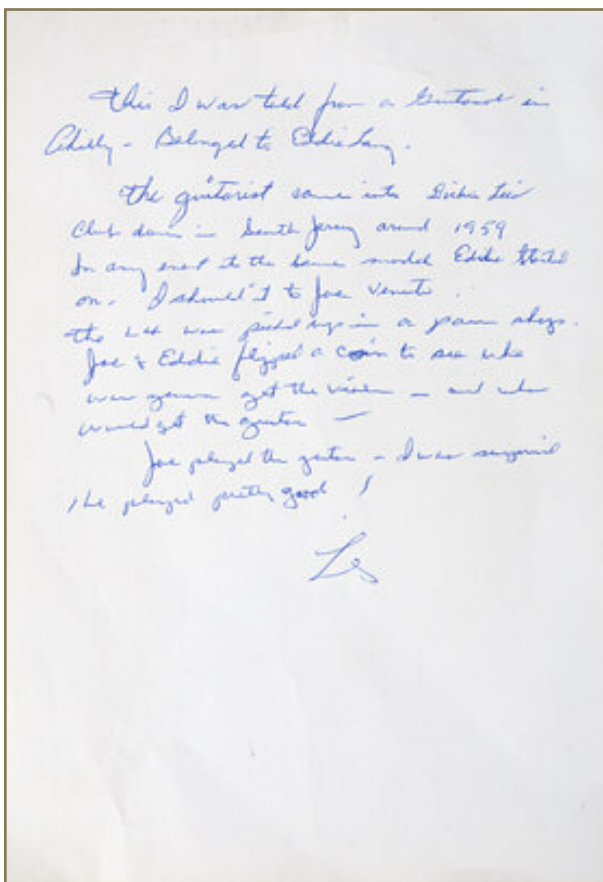 this I was told from a Guitarist in
Philly - Belonged to Eddie Lang.
the guitarist came into
Club down in South Jersey around 1959
In any event it the same model Eddie started
on. I to Joe Venuti.
the L4 was picked up in a pawn shop.
Joe & Eddie flipped a coin to see who
was gonna get the violin - and who
would get the guitar -
Joe played the guitar - I was surprised
he played pretty good !
Les